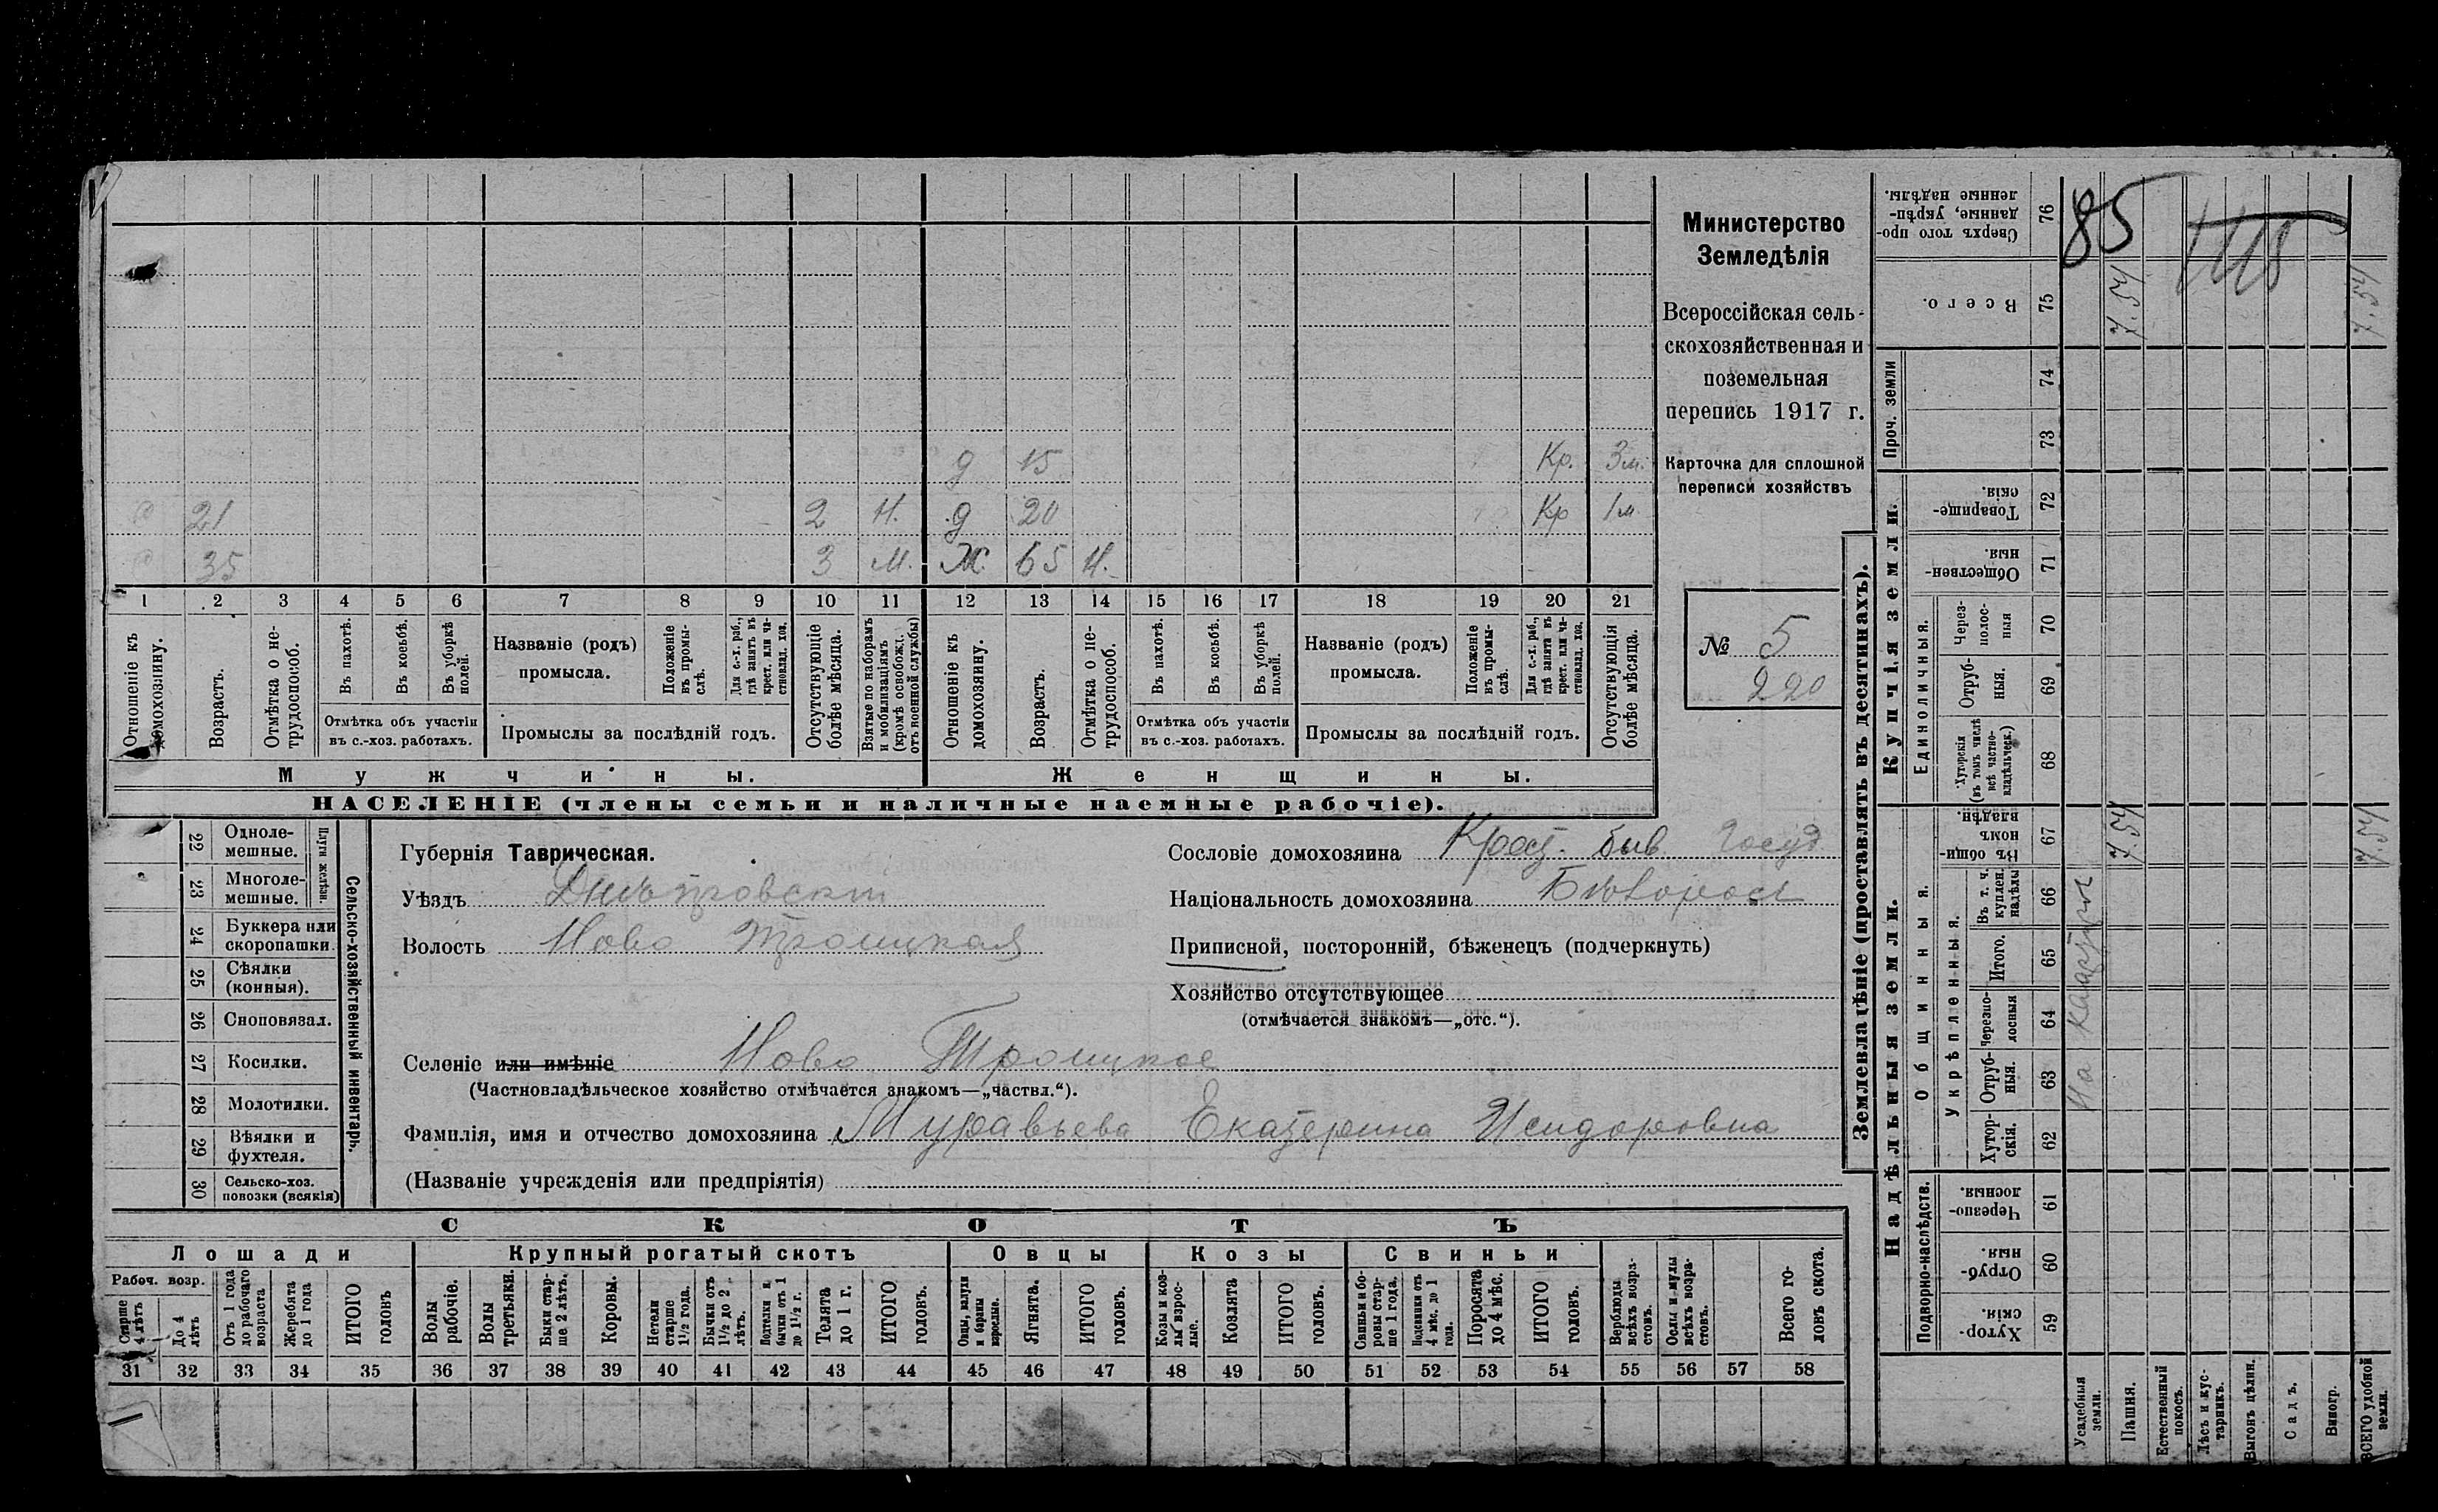 Министерство
Земледѣлія
Всероссійская сель-
скохозяйственная и
поземельная
перепись 1917 г.
Карточка для сплошной
переписи хозяйствъ
№ 5
220
д 15 Кр. 3 м.
21 2 Н. д 20 Кр 1 м.
35 3 М. Ж. 65 Н.
1 2 3 4 5 6 7 8 9 10 11 12 13 14 15 16 17 18 19 20 21
Отношеніе къ домохозяину.
Возрастъ.
Отмѣтка о не-трудоспособ.
Въ пахотѣ.
Въ косьбѣ.
Въ уборкѣ полей.
Отмѣтка объ участіи
въ с.-хоз. работахъ.
Названіе (родъ)
промысла.
Положеніе въ промы-слѣ.
Для с.-х. раб., гдѣ занятъ въ крест. или ча-стновлад. хоз.
Промыслы за послѣдній годъ.
Отсутствующіе болѣе мѣсяца.
Взятые по наборамъ и мобилизаціямъ (кромѣ освобожд. отъ военной службы)
Отношеніе къ домохозяину.
Возрастъ.
Отмѣтка о не-трудоспособ.
Въ пахотѣ.
Въ косьбѣ.
Въ уборкѣ полей.
Отмѣтка объ участіи
въ с.-хоз. работахъ.
Названіе (родъ)
промысла.
Положеніе въ промы-слѣ.
Для с.-х. раб., гдѣ занята въ крест. или ча-стновлад. хоз.
Промыслы за послѣдній годъ.
Отсутствующія болѣе мѣсяца.
Мужчины.
Женщины.
НАСЕЛЕНІЕ (члены семьи и наличные наемные рабочіе).
22 Одноле-мешные.
23 Многоле-мешные.
Плуги желѣзн.
24 Буккера или скоропашки.
25 Сѣялки (конныя).
26 Сноповязал.
27 Косилки.
28 Молотилки.
29 Вѣялки и фухтеля.
30 Сельско-хоз. повозки (всякія)
Сельско-хозяйственный инвентарь.
Губернія Таврическая.
Уѣздъ Днѣпровскій
Волость Ново Троицкая
Селеніе или имѣніе Ново Троицкое
(Частновладѣльческое хозяйство отмѣчается знакомъ—„частвл.“).
Фамилія, имя и отчество домохозяина Муравьева Екатерина Исидоровна
(Названіе учрежденія или предпріятія)
Сословіе домохозяина Крест. быв. Госуд
Національность домохозяина
Приписной, посторонній, бѣженецъ (подчеркнуть)
Хозяйство отсутствующее
(отмѣчается знакомъ—„отс.“).
СКОТЪ
Лошади
Крупный рогатый скотъ
Овцы
Козы
Свиньи
Рабоч. возр.
Старше 4 лѣтъ
До 4 лѣтъ
Отъ 1 года до рабочаго возраста
Жеребята до 1 года
ИТОГО головъ
Волы рабочіе.
Волы третьяки.
Быки стар-ше 2 лѣтъ.
Коровы.
Нетели старше 1½ года.
Бычки отъ 1½ до 2 лѣтъ.
Подтелки и бычки отъ 1 до 1½ г.
Телята до 1 г.
ИТОГО головъ.
Овцы, валухи и бараны взрослые.
Ягнята.
ИТОГО головъ.
Козы и коз-лы взрос-лые.
Козлята
ИТОГО головъ.
Свиньи и бо-ровы стар-ше 1 года.
Подсвинки отъ 4 мѣс. до 1 года.
Поросята до 4 мѣс.
ИТОГО головъ.
Верблюды всѣхъ возра-стовъ.
Ослы и мулы всѣхъ возра-стовъ.
Всего го-ловъ скота.
31 32 33 34 35 36 37 38 39 40 41 42 43 44 45 46 47 48 49 50 51 52 53 54 55 56 57 58
Землевладѣніе (проставлять въ десятинахъ).
Надѣльныя земли.
Купчія земли.
Проч. земли
Подворно-наслѣдств.
Общинныя.
Укрѣпленныя.
Единоличныя.
Хутор-скія. 59
Отруб-ныя. 60
Черезпо-лосныя. 61
Хутор-скія. 62
Отруб-ныя. 63
Черезпо-лосныя 64
Итого. 65
Въ т. ч. куплен. надѣлы 66
Въ общи-номъ владѣн. 67
Хуторскія (въ томъ числѣ всѣ частно-владѣльческ.) 68
Отруб-ныя. 69
Через-полос-ныя 70
Обществен-ныя. 71
Товарище-скія. 72
73
74
Всего. 75
Сверхъ того про-данные, укрѣп-ленные надѣлы. 76
Усадебныя земли.
Пашня. 7.54 7.54
Естественный покосъ.
Лѣсъ и кус-тарникъ.
Выгонъ цѣлин.
Садъ.
Виногр.
ВСЕГО удобной земли. 7.54 7.54
85